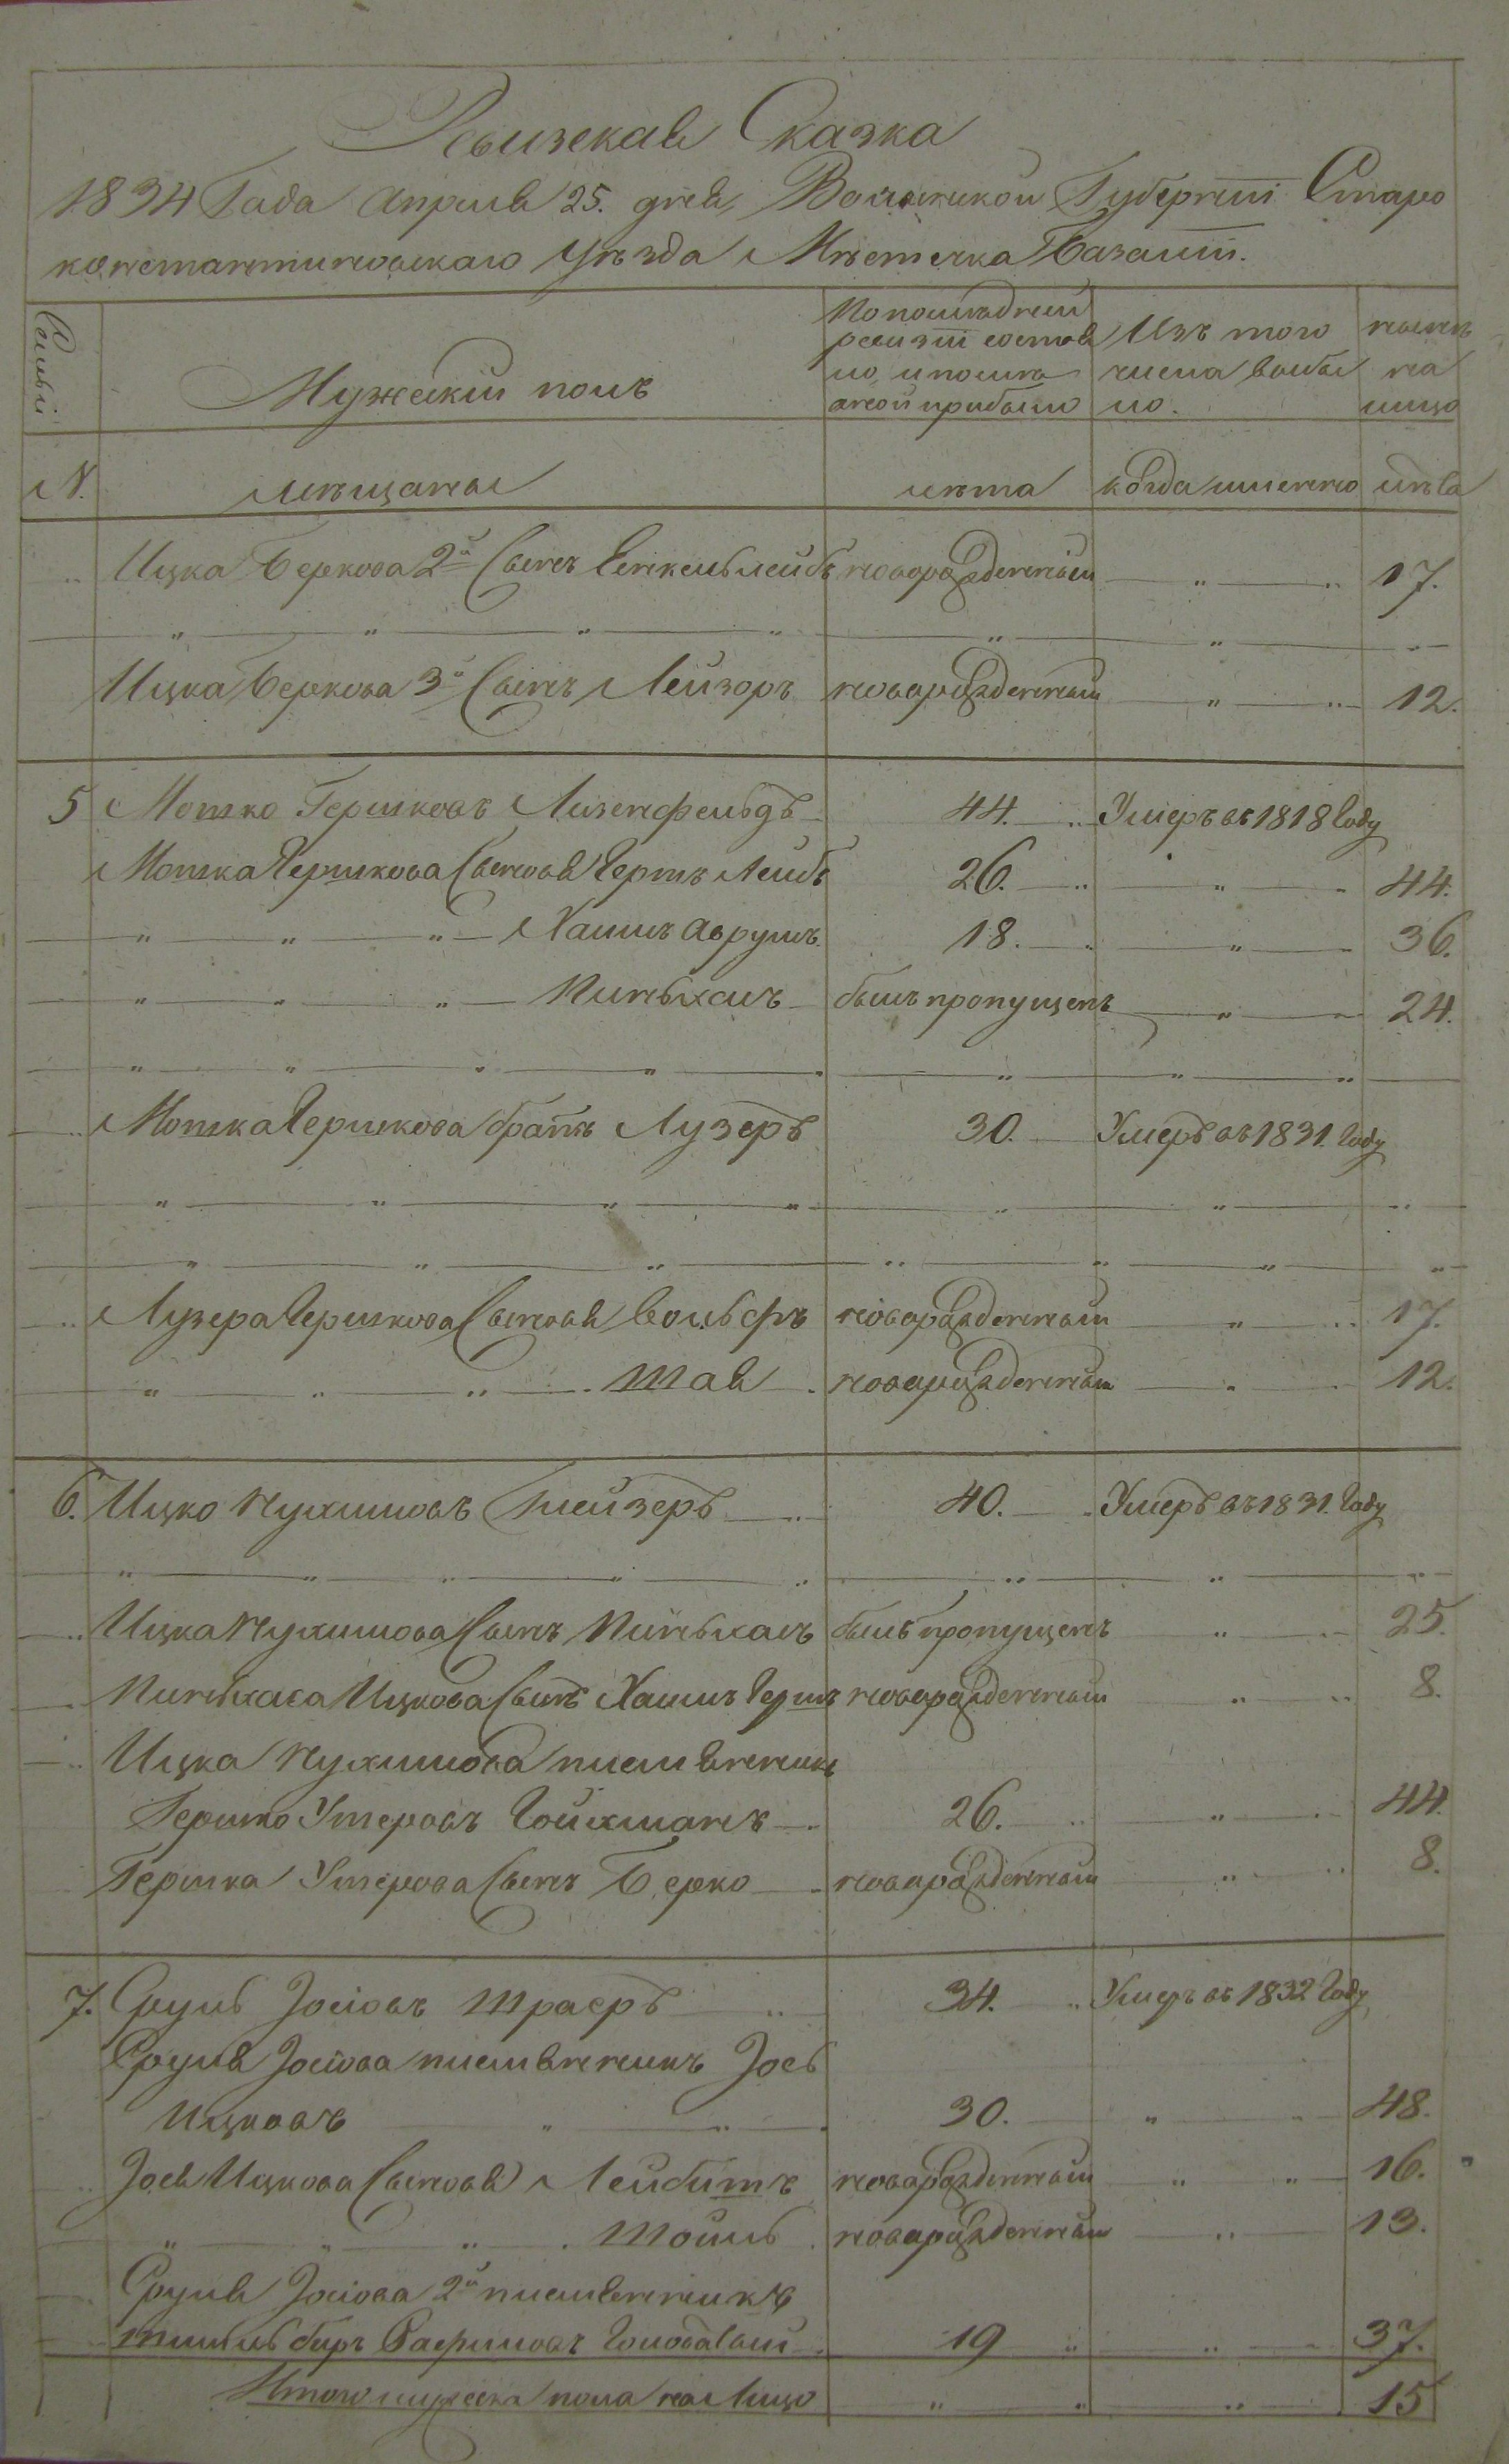 Ревизская Сказка
1834 Года Апреля 25. дня, Волынской Губернiи Старо
константиновскаго Уѣзда Мѣстечка Базалiи.
Семьи
Мужескiй полъ
По послѣдней ревизiи состоя ло, и послѣ оной прибыло
Изъ того числа выбы ло.
нынѣ на лицо
№. мѣщаны лѣта когда именно лѣта
„ Ицка Беркова 2й Сынъ Бенкель Лейбъ новорожденный „ „ 17.
„ „ „ „ „ „ „
Ицка Беркова 3й Сынъ Лейзоръ новорожденный „ „ 12.
5 Мошко Гершковъ Лизенфельдъ 44. Умеръ въ 1818 Году
Мошка Гершкова Сыновья Гершъ Лейбъ 26. „ „ 44.
„ „ „ Хаимъ Аврумъ 18. „ „ 36.
„ „ „ Пиньхасъ былъ пропущенъ „ „ 24.
„ „ „ „ „ „ „ „
„ Мошка Гершкова братъ Лузеръ 30. Умеръ въ 1831. Году
„ „ „ „ „ „ „
„ „ „ „ „ „ „
„ Лузера Гершкова Сыновья Вольфъ новорожденный „ „ 17.
„ „ „ Шая новорожденный „ „ 12.
6. Ицко Нухимовъ Глейзеръ 40. Умеръ въ 1831. Году
„ „ „ „ „ „ „ „
„ Ицка Нухимова Сынъ Пиньхасъ былъ пропущенъ „ „ 25.
„ Пиньхаса Ицкова Сынъ Хаимъ Гершъ новорожденный „ „ 8.
„ Ицка Нухимова племянникъ
Гершко Умеровъ Гойхманъ 26. „ „ 44.
Гершка Умерова Сынъ Берко новорожденный „ „ 8.
7. Сруль Iосiовъ Шраеръ 34. Умеръ въ 1832 Году
Сруля Iосiова племянникъ Iось
Ицковъ „ „ 30. „ „ 48.
„ Iося Ицкова Сыновья Лейбишъ новорожденный „ „ 16.
„ „ „ Шоиль новорожденный „ 13.
Сруля Iосiова 2й племянникъ
Рафиловъ 19 „ „ 37.
Итого мужеска пола на Лицо „ „ „ 15